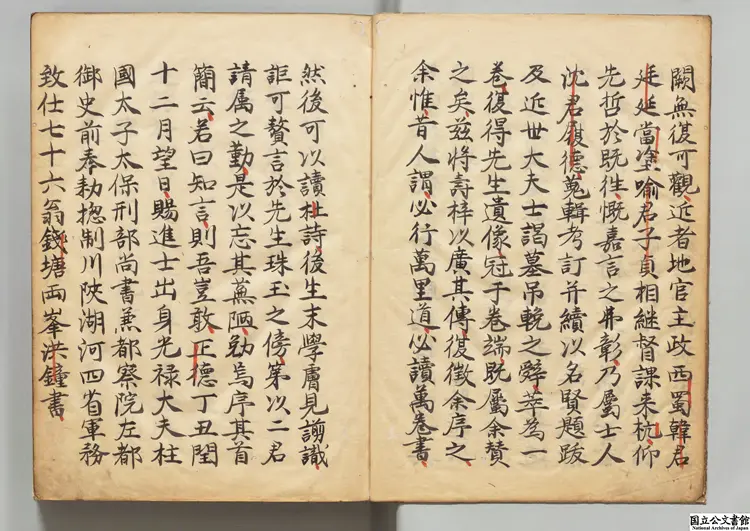 闕無復可觀近者地官主政西蜀韓君
廷延當塗喻君子貞相継督課来杭仰
先哲於既徃慨嘉言之弗彰乃屬士人
沈君履德蒐輯考訂并續以名賢題跋
及近世大夫士謁墓吊輓之辤萃為一
卷復得先生遺像冠于卷端既屬余賛
之矣茲將壽梓以廣其傳復徵余序之
余惟昔人謂必行萬里道必讀萬卷書
然後可以讀杜詩後生末學膚見謭識
詎可贅言於先生珠玉之傍第以二君
請属之勤是以忘其蕪陋勉為序其首
簡云若曰知言則吾豈敢正德丁丑閏
十二月望日賜進士出身光禄大夫柱
國太子太保刑部尚書兼都察院左都
御史前奉勑揔制川陜湖河四省軍務
致仕七十六翁錢塘兩峯洪鐘書
国立公文書館
National Archives of Japan